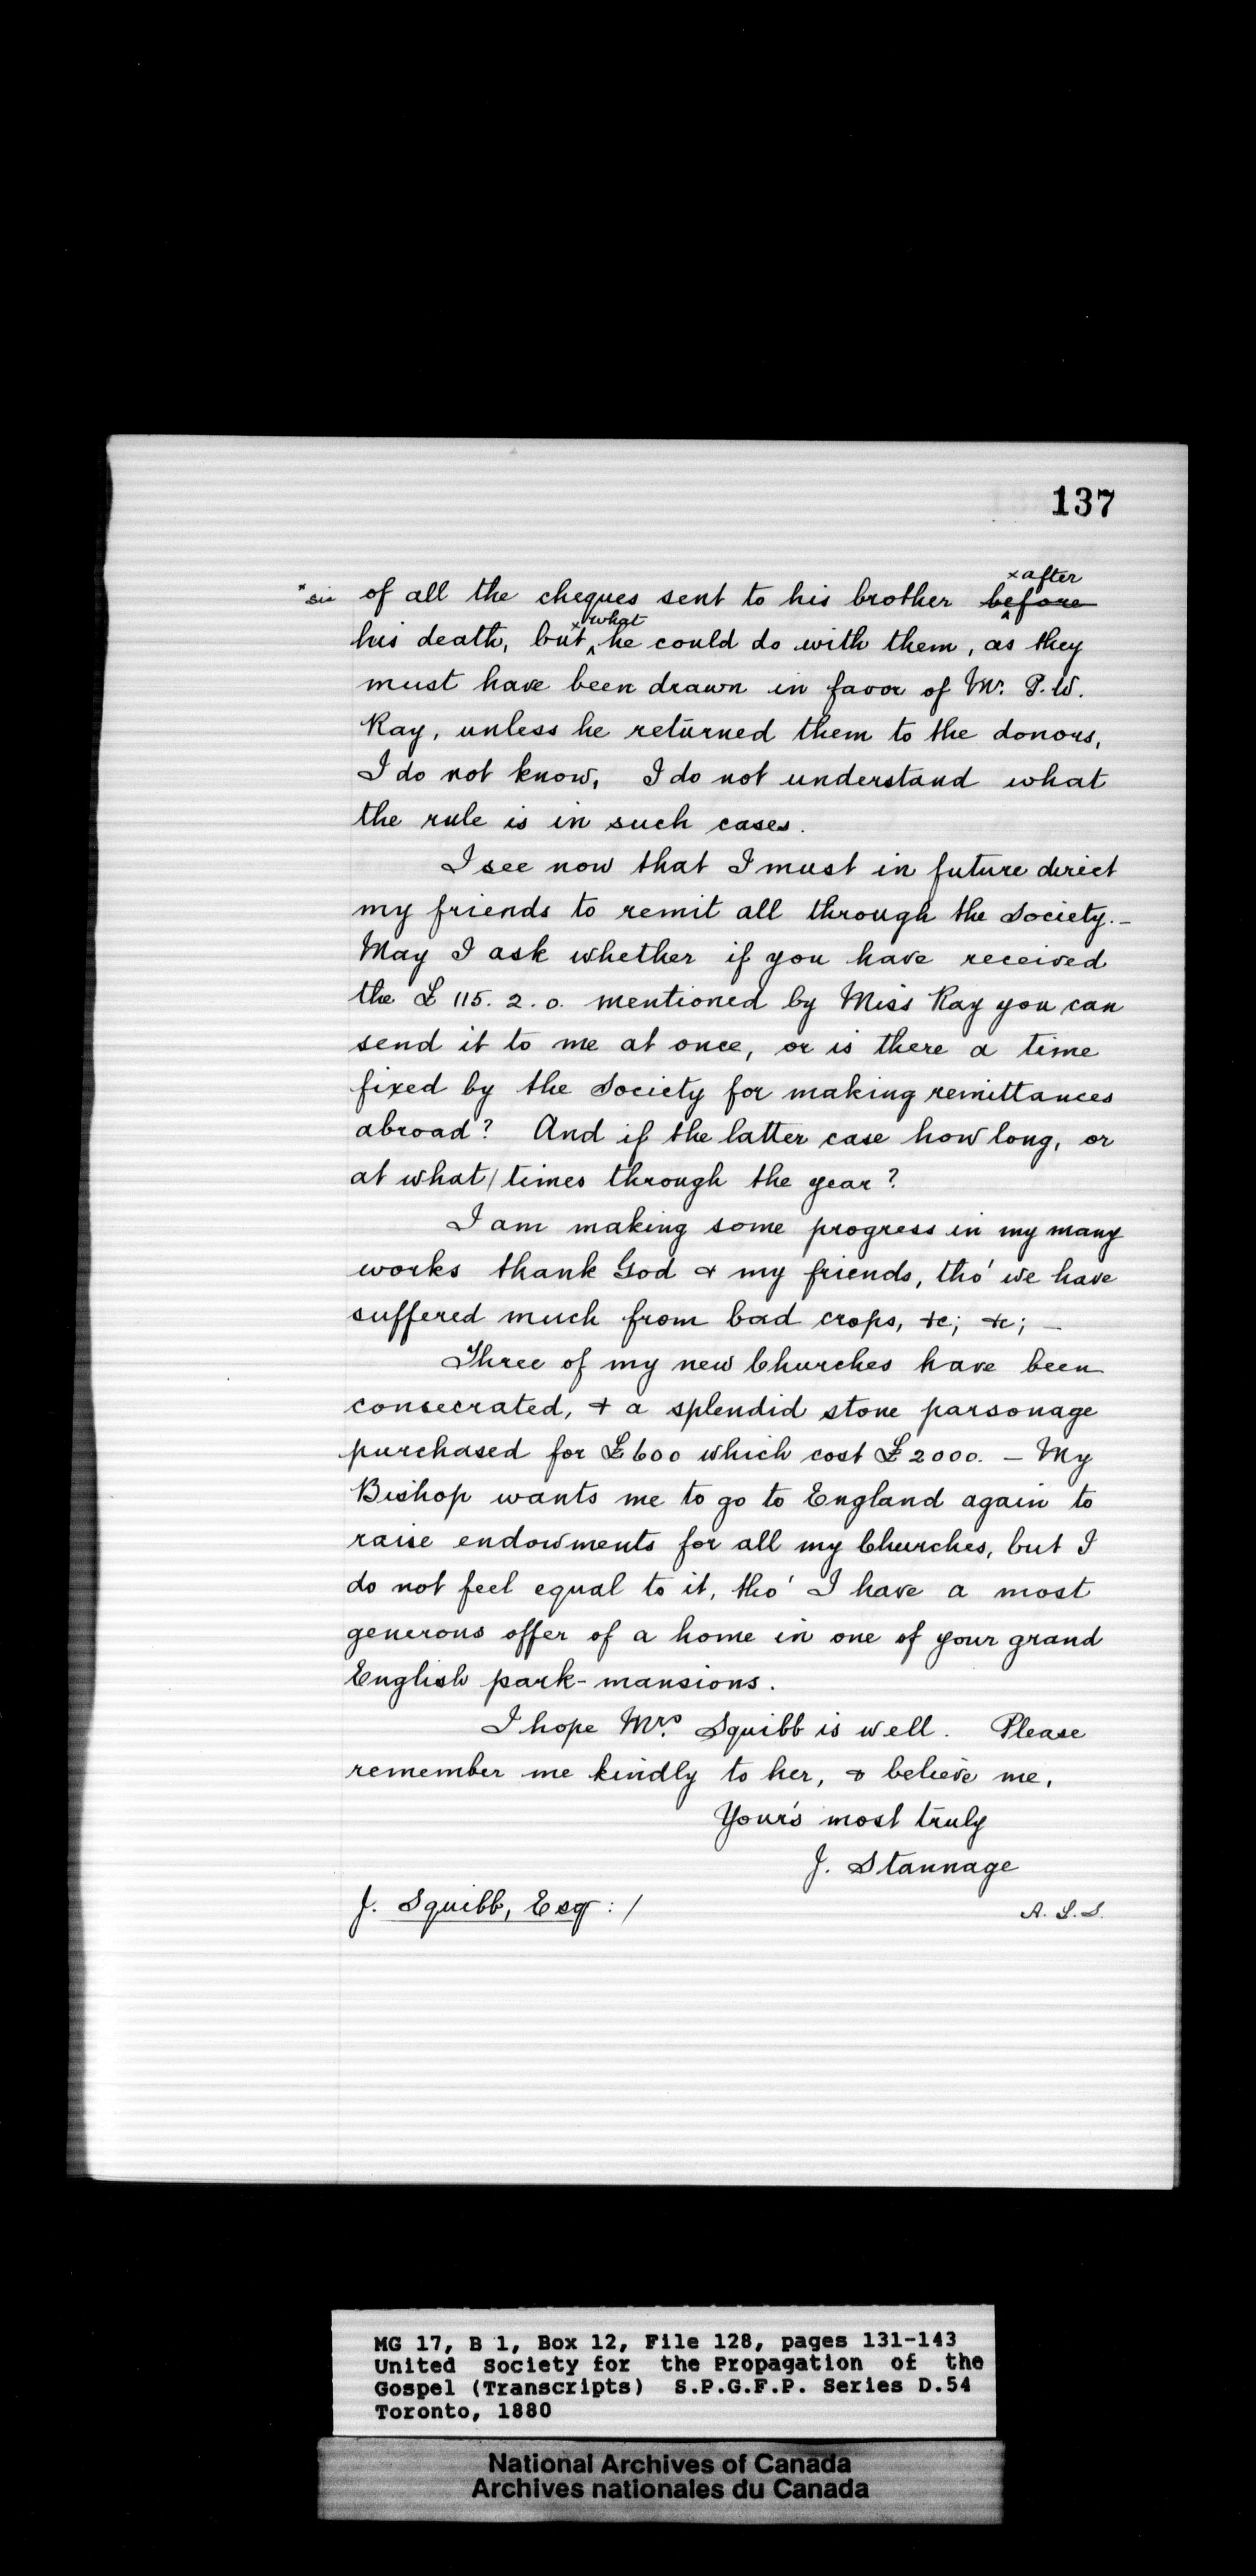 137
* sic of all the cheques sent to his brother before x after
his death, but x what he could do with them, as they
must have been drawn in favor of Mr. P. W.
Ray, unless he returned them to the donors,
I do not know, I do not understand what
the rule is in such cases.
I see now that I must in future direct
my friends to remit all through the Society. –
May I ask whether if you have received
the £ 115. 2. 0. mentioned by Miss Ray you can
send it to me at once, or is there a time
fixed by the Society for making remittances
abroad? And if the latter case how long, or
at what / times through the year?
I am making some progress in my many
works thank God & my friends, tho' we have
suffered much from bad crops, &c; &c; –
Three of my new Churches have been
consecrated, & a splendid stone parsonage
purchased for £600 which cost £2000. – My
Bishop wants me to go to England again to
raise endowments for all my Churches, but I
do not feel equal to it, tho' I have a most
generous offer of a home in one of your grand
English park-mansions.
I hope Mrs. Squibb is well. Please
remember me kindly to her, & believe me,
Your's most truly
J. Stannage
J. Squibb, Esq : /
A. L. S.
MG 17, B 1, Box 12, File 128, pages 131-143
United Society for the Propagation of the
Gospel (Transcripts) S.P.G.F.P. Series D.54
Toronto, 1880
National Archives of Canada
Archives nationales du Canada